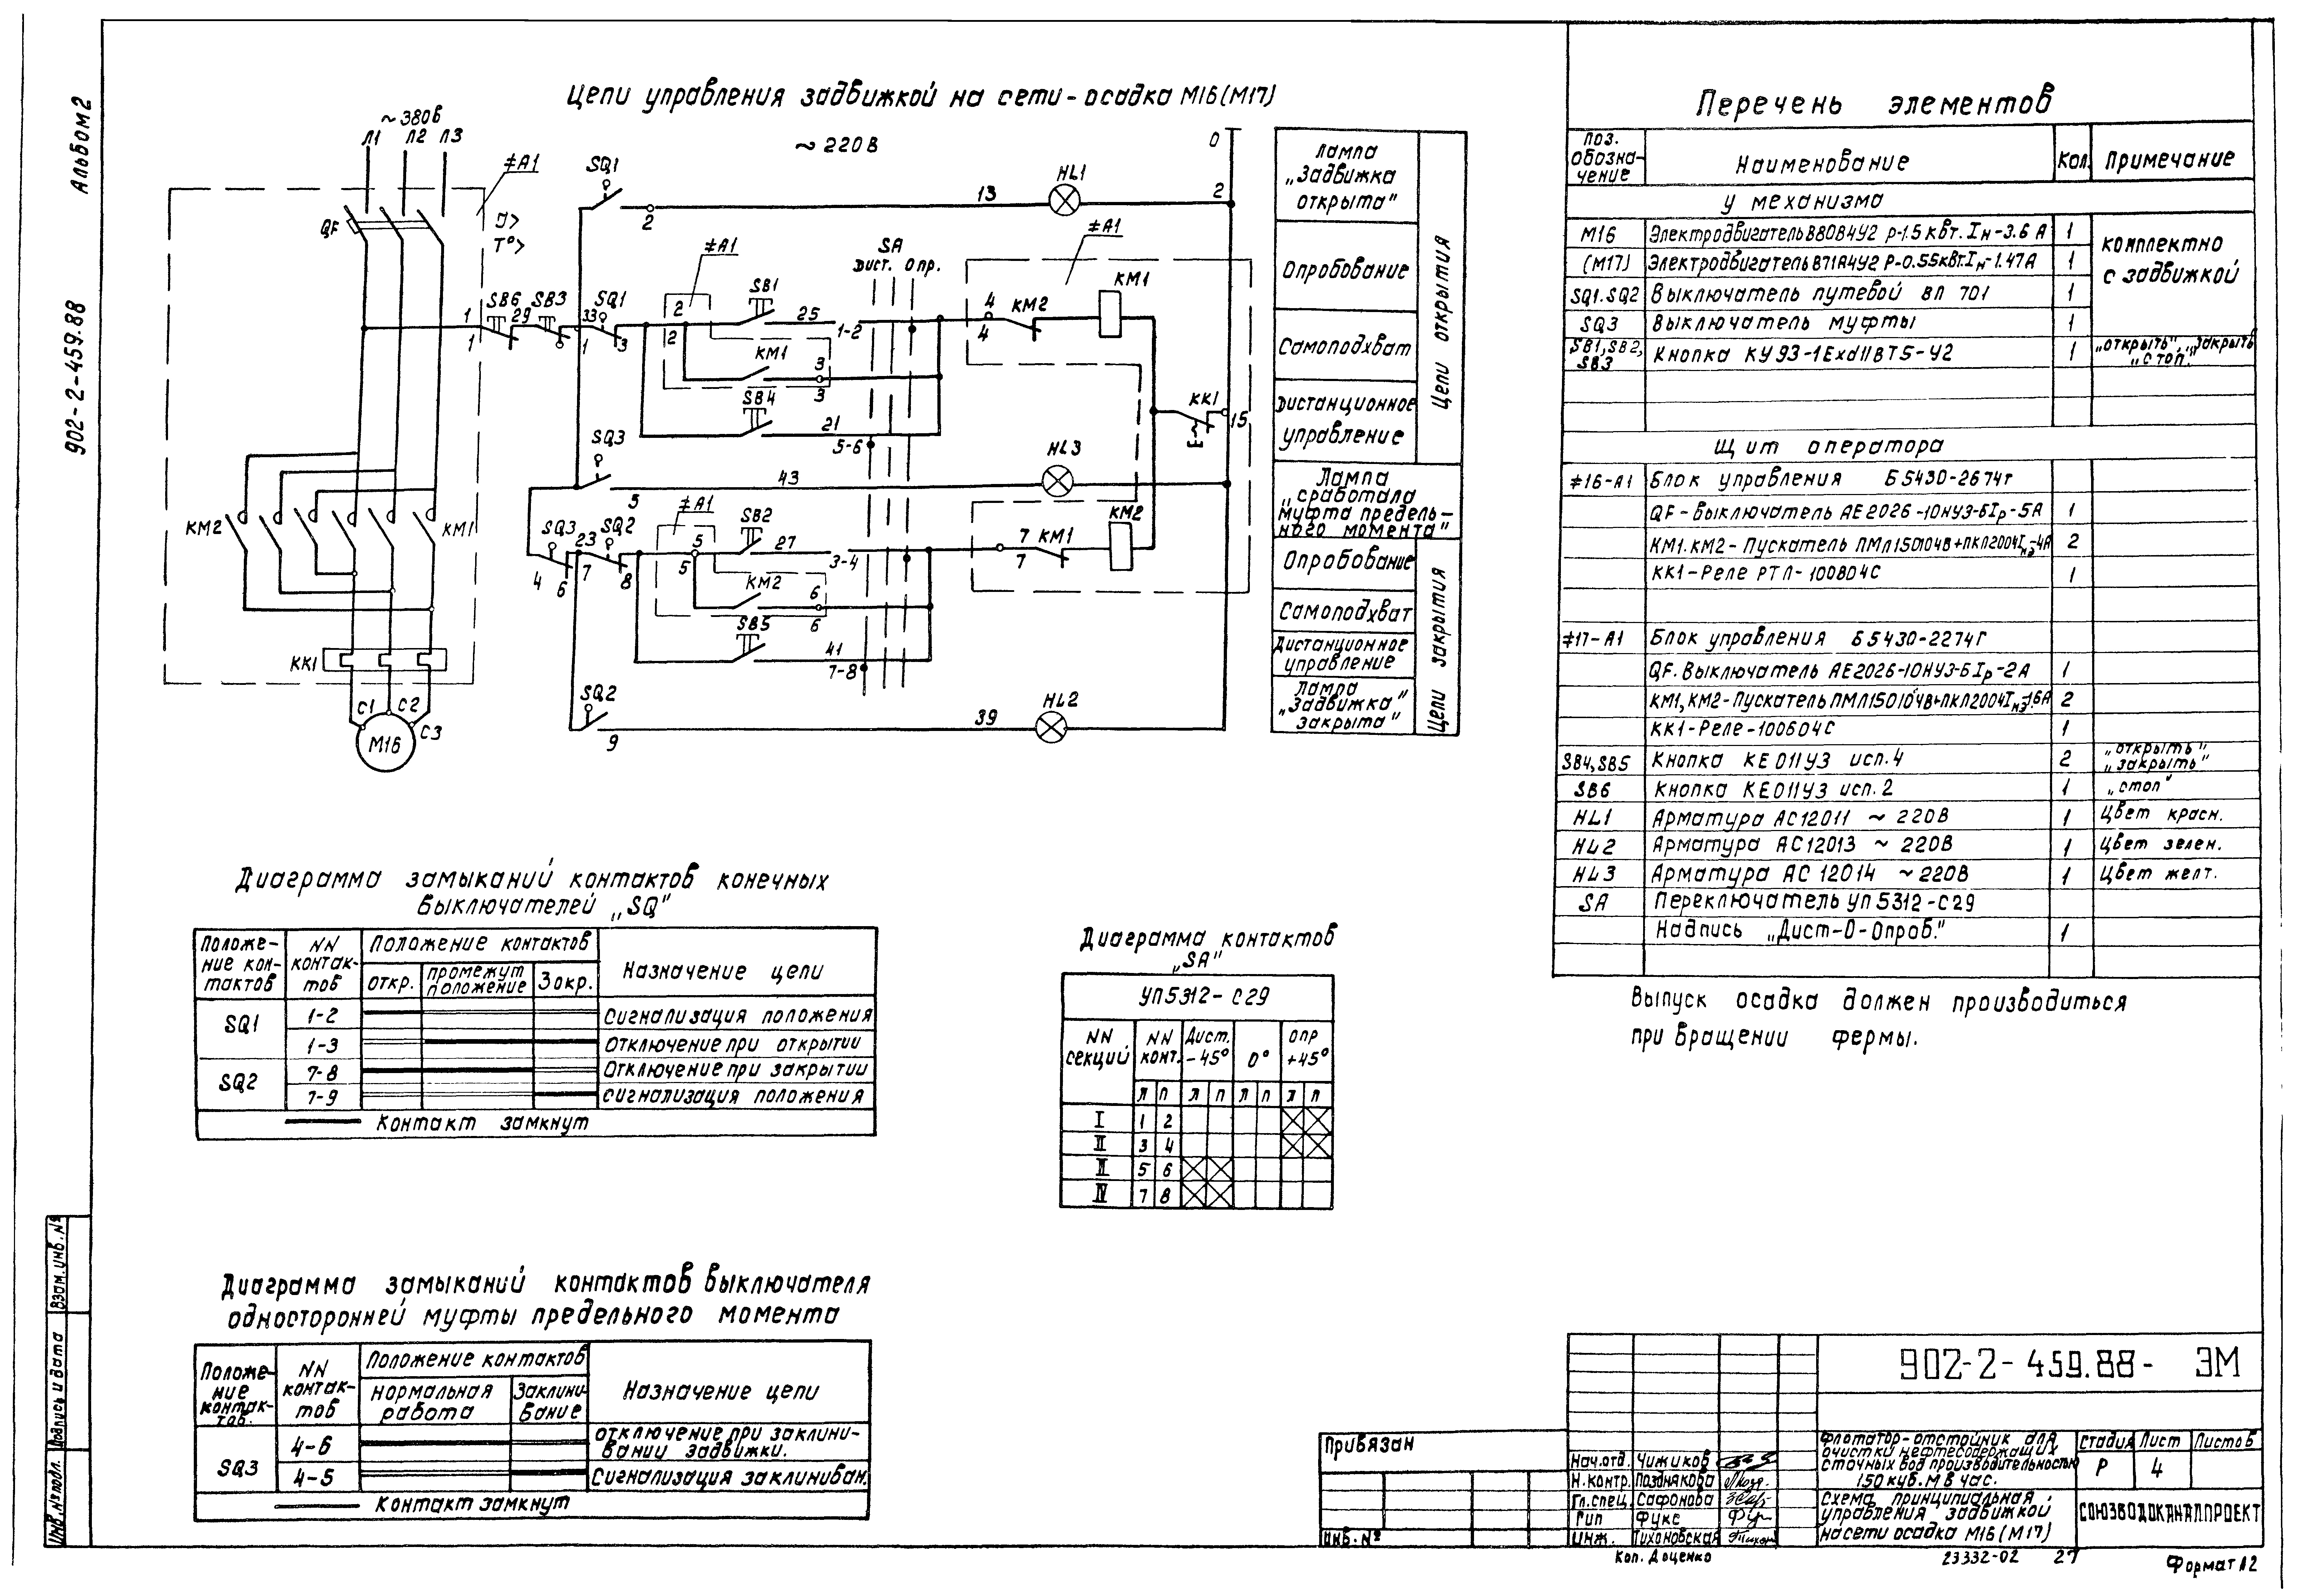 Альбом2
902-2-459.88
Цепи управления задвижкой на сети-осадка М16(М17)
~380В
Л1 Л2 Л3
≠А1
QF
I>
T°>
~220В
0
SQ1
2
13
HL1
2
≠А1
SA
Дист. Опр.
≠А1
1
1
SB6
29
SB3
33
SQ1
1
3
2
2
SB1
25
1-2
4
4
KM2
KM1
KM1
3
3
SB4
21
5-6
KK1
15
SQ3
5
43
HL3
≠А1
KM2
KM1
SQ3
23
SQ2
4
6
7
8
5
5
SB2
27
3-4
7
7
KM1
KM2
KM2
6
6
SB5
41
7-8
KK1
C1 C2 C3
М16
SQ2
9
39
HL2
Лампа „Задвижка открыта"
Опробование
Самоподхват
Дистанционное управление
Цепи открытия
Лампа „сработала муфта предель-ного момента"
Опробование
Самоподхват
Дистанционное управление
Лампа „Задвижка закрыта"
Цепи закрытия
Перечень элементов
Поз. обозна-чение Наименование Кол. Примечание
У механизма
М16 Электродвигатель В80В4У2 Р-1.5 кВт. Iн-3.6 А 1
комплектно с задвижкой
(М17) Электродвигатель В71А4У2 Р-0.55кВт.Iн-1.47А 1
SQ1.SQ2 Выключатель путевой ВП 701 1
SQ3 Выключатель муфты 1
SB1,SB2, SB3 Кнопка КУ93-1ExdIIBT5-У2 1 „открыть", „закрыть" „стоп"
Щит оператора
≠16-А1 Блок управления Б5430-2674г
QF-Выключатель АЕ2026-10НУ3-БIр-5А 1
КМ1.КМ2-Пускатель ПМЛ150104В+ПКЛ2004Iнэ-4А 2
КК1-Реле РТЛ-100804С 1
≠17-А1 Блок управления Б5430-2274Г
QF.Выключатель АЕ2026-10НУ3-БIр-2А 1
КМ1,КМ2-Пускатель ПМЛ150104В+ПКЛ2004Iнэ-1.6А 2
КК1-Реле-100604С 1
SB4,SB5 Кнопка КЕ011У3 исп.4 2 „открыть" „закрыть"
SB6 Кнопка КЕ011У3 исп.2 1 „стоп"
HL1 Арматура АС12011 ~220В 1 Цвет красн.
HL2 Арматура АС12013 ~220В 1 Цвет зелен.
HL3 Арматура АС12014 ~220В 1 Цвет желт.
SA Переключатель УП5312-С29
Надпись „Дист-О-Опроб." 1
Выпуск осадка должен производиться
при вращении фермы.
Диаграмма замыканий контактов конечных
выключателей „SQ"
Положе-ние кон-тактов NN контак-тов Положение контактов Назначение цепи
откр. промежут положение Закр.
SQ1 1-2 Сигнализация положения
1-3 Отключение при открытии
SQ2 7-8 Отключение при закрытии
7-9 сигнализация положения
Контакт замкнут
Диаграмма контактов
„SA"
УП5312-С29
NN секций NN конт. Дист. -45° 0° Опр +45°
Л П Л П Л П Л П
I 1 2
II 3 4
II 5 6
IV 7 8
Диаграмма замыканий контактов выключателя
односторонней муфты предельного момента
Положе-ние контак-тов. NN контак-тов Положение контактов Назначение цепи
нормальная работа Заклини-вание
SQ3 4-6 отключение при заклини-вании задвижки.
4-5 Сигнализация заклиниван.
Контакт замкнут
902-2-459.88- ЭМ
Привязан
Инв.№
Нач.отд. Чижиков
Н.контр. Позднякова
Гл.спец. Сафонова
Гип Фукс
Инж. Тихоновская
Флотатор-отстойник для очистки нефтесодержащих сточных вод производительностью 150 куб.м в час.
Стадия Лист Листов
Р 4
Схема принципиальная управления задвижкой на сети осадка М16(М17)
СОЮЗВОДОКАНАЛПРОЕКТ
Коп. Доценко
23332-02 27
Формат А2
Взам.инв.№
Подпись и дата
Инв.№подл.